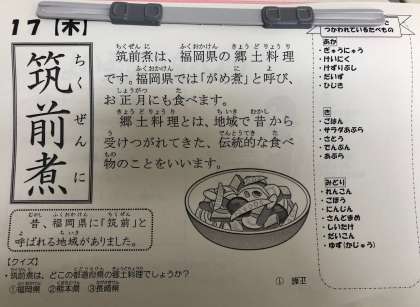 17【木】
筑前煮
ちくぜんに
筑前煮は、福岡県の郷土料理
です。福岡県では「がめ煮」と呼び、
お正月にも食べます。
郷土料理とは、地域で昔から
受けつがれてきた、伝統的な食べ
物のことをいいます。
昔、福岡県に「筑前」と
呼ばれる地域がありました。
【クイズ】
筑前煮は、どこの都道府県の郷土料理でしょうか?
①福岡県 ②熊本県 ③長崎県
つかわれているたべもの
あか
・ぎゅうにゅう
・けいにく
・けずりぶし
・だいず
・ひじき
き
・ごはん
・サラダあぶら
・さとう
・でんぷん
・あぶら
みどり
・れんこん
・ごぼう
・にんじん
・さんどまめ
・しいたけ
・だいこん
・ゆず(かじゅう)